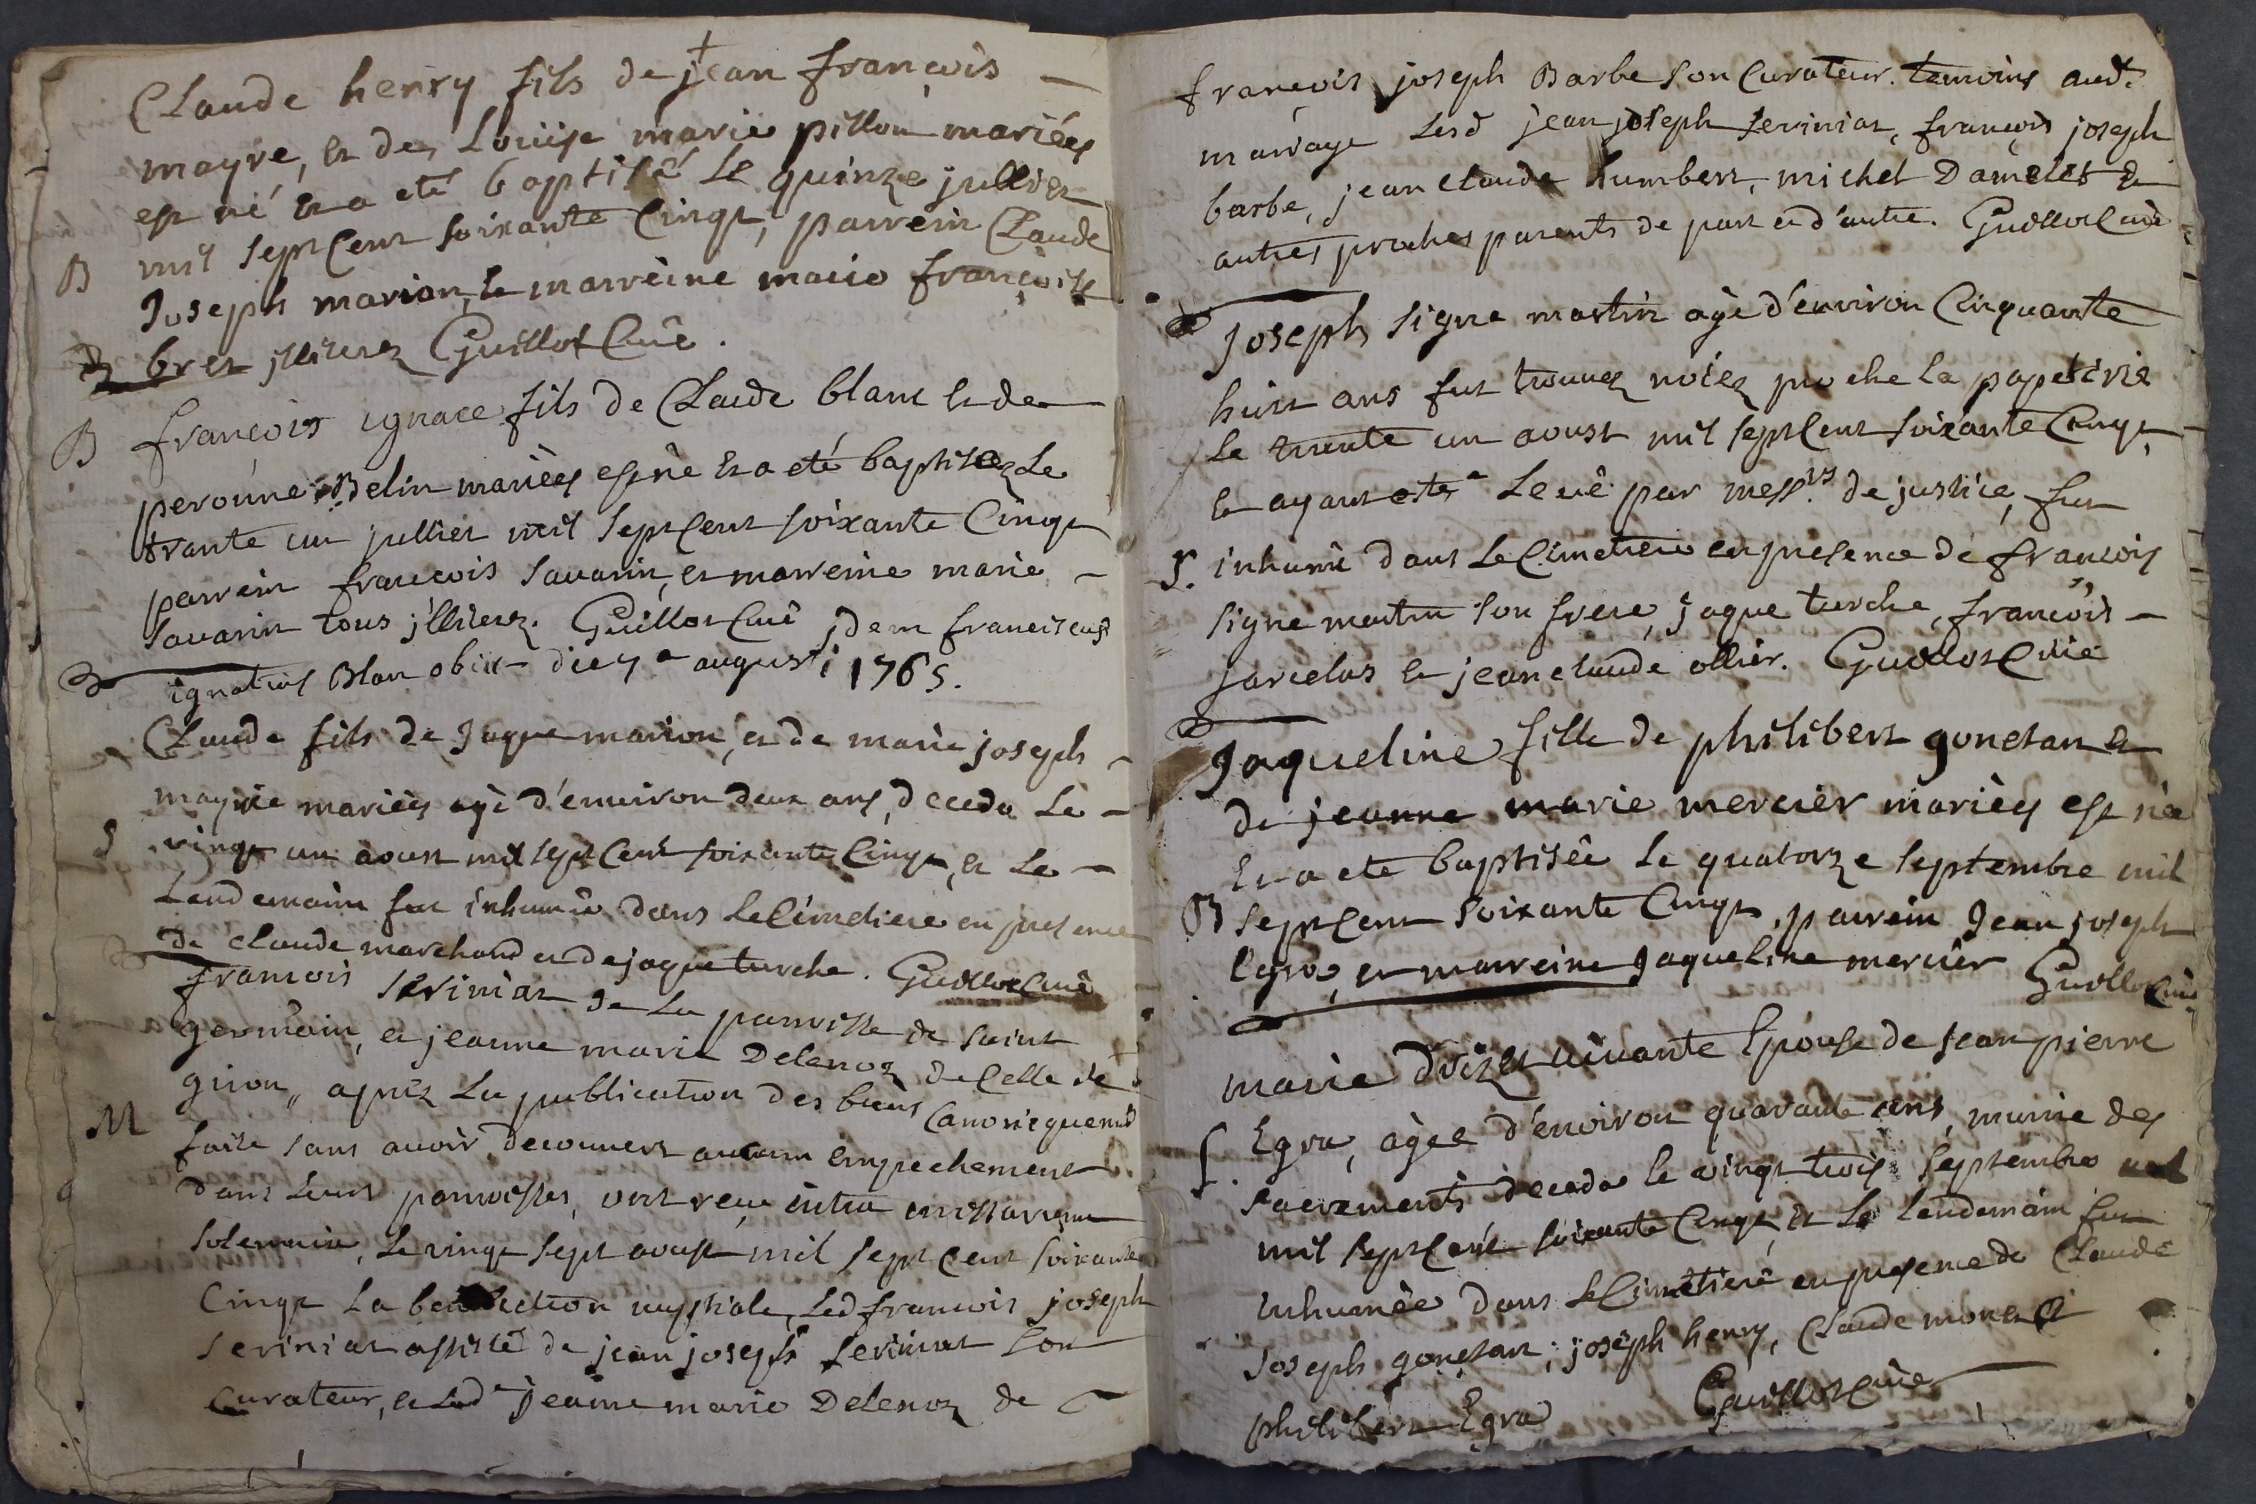 Claude henry fils de jean françois
mayre, et de Louïse marie pillon mariées
est né et a eté baptisé le quinze jullier
B mil sept Cent soixante Cinqt, parrein Claude
Joseph marion, et marreine marie françoise
bret illiterez Guillot Curé.
B françois ignace fils de Claude blanc et de
peronne Belin mariées est né et a eté baptisez le
trante un jullier mil sept Cent soixante Cinqt
parrein francois Savarin, et marreine marie
Savarin tous illiterez. Guillot Curé idem franciscus
ignatius Blan obiit die 7a augusti 1765.
Claude fils de Jaque marion, et de marie joseph
mayrie mariées agé d'environ deux ans, deceda Le
S vingt un aoust mil sept Cent soixante Cinqt, et Le
Lendemain fut inhumé dans Le Cimetiere en presence
de claude marchand et de jaque turche. Guillot Curé
francois Seriniat de La parroisse de saint
germain, et jeanne marie Delenoz de Celle de
giron, aprez La publication des bans Canoniquement
M faite sans avoir decouvert aucun empechement
dans Leurs parroisses, ont reçu intra missarum
solemnia, Le vingt sept aoust mil sept cent soixante
Cinqt La benediction nuptiale, Led francois joseph
Seriniat assisté de jean joseph Seriniat son
Curateur, et Lade jeanne marie Delenoz de
francois joseph Barbe son Curateur. temoins audt
mariage Lesd jean joseph Seriniat, françois joseph
barbe, jean claude humbert, michel Damelet et
autres proches parents de part et d'autre. Guillot Curé
Joseph signe martin agé d'environ Cinquante
huit ans fut trouvez noiez proche la papeterie
Le trente un aoust mil sept Cent soixante Cinqt,
et ayant esté Levé par messrs de justice, fut
S. inhumé dans Le Cimetiere en presence de francois
signe martin son frere, jaque turche, françois
jarcelas et jean claude ollier. Guillot Curé
Jaqueline fille de philibert gonetan et
de jeanne marie mercier mariées est née
et a eté baptisée le quatorze septembre mil
B sept Cent soixante Cinqt, parrein Jean joseph
Egra, et marreine Jaqueline mercier Guillot Curé
marie vivante Epouse de jean pierre
Egra, agée d'environ quarante ans, munie des
S. sacrements deceda le vingt trois septembre
mil sept Cent soixante Cinqt, et Le Lendemain fut
inhumée dans Le Cimetiere en presence de Claude
joseph gonetan; joseph henry, Claude monet et
philibert Egra Guillot Curé